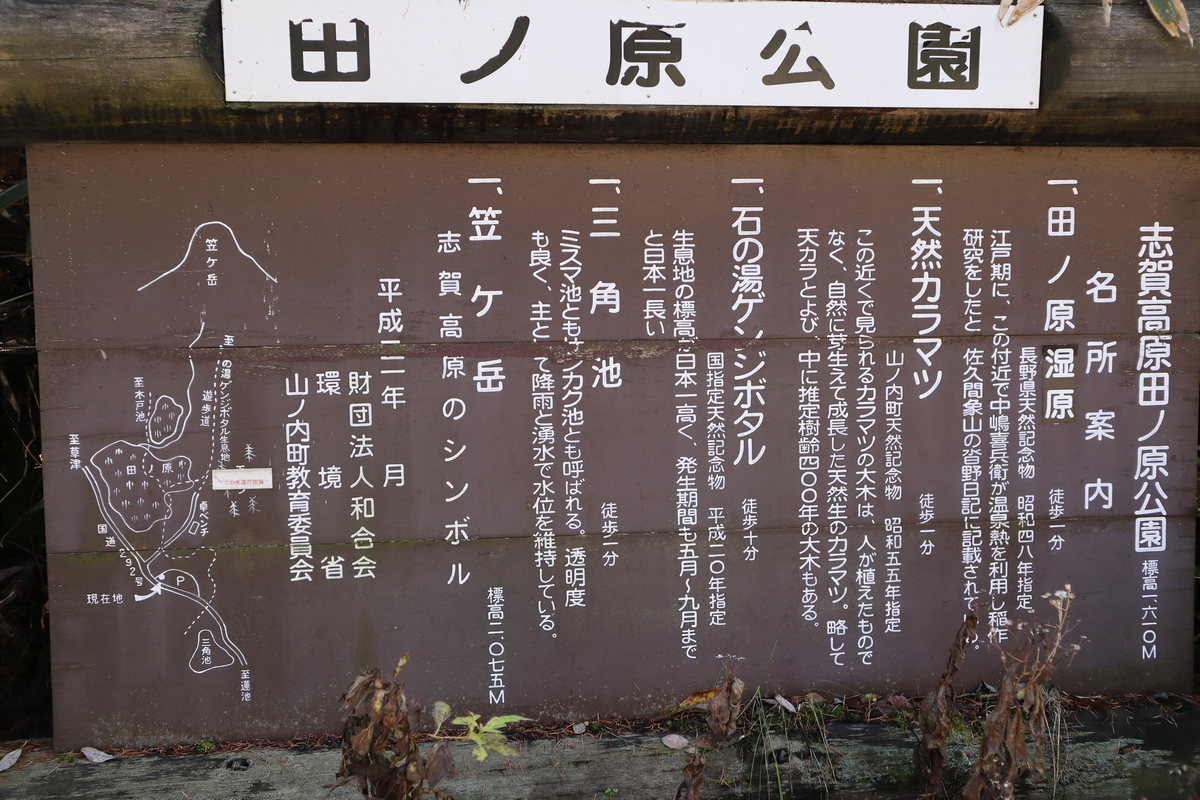 田ノ原公園
志賀高原田ノ原公園 標高一、六一〇M
名所案内
一、田ノ原湿原 徒歩一分
長野県天然記念物 昭和四八年指定
江戸期に、この付近で中嶋喜兵衛が温泉熱を利用し稲作
研究をしたと 佐久間象山の沓野日記に記載されて
一、天然カラマツ 徒歩一分
山ノ内町天然記念物 昭和五五年指定
この近くで見られるカラマツの大木は、人が植えたもので
なく、自然に芽生えて成長した天然生のカラマツ。略して
天カラとよび、中に推定樹齢四〇〇年の大木もある。
一、石の湯ゲンジボタル 徒歩十分
国指定天然記念物 平成二〇年指定
生息地の標高 日本一高く、発生期間も五月〜九月まで
と日本一長い
一、三角池 徒歩二分
ミスマ池とも カク池とも呼ばれる。透明度
も良く、主と て降雨と湧水で水位を維持している。
一、笠ケ岳 標高二、〇七五M
志賀高原のシンボル
平成二一年 月
財団法人和合会
環境省
山ノ内町教育委員会
笠ケ岳
至 の湯ゲンジボタル生息地
遊歩道
至木戸池
至草津
田ノ原
卓ベンチ
国道292号
P
現在地
三角池
至蓮池